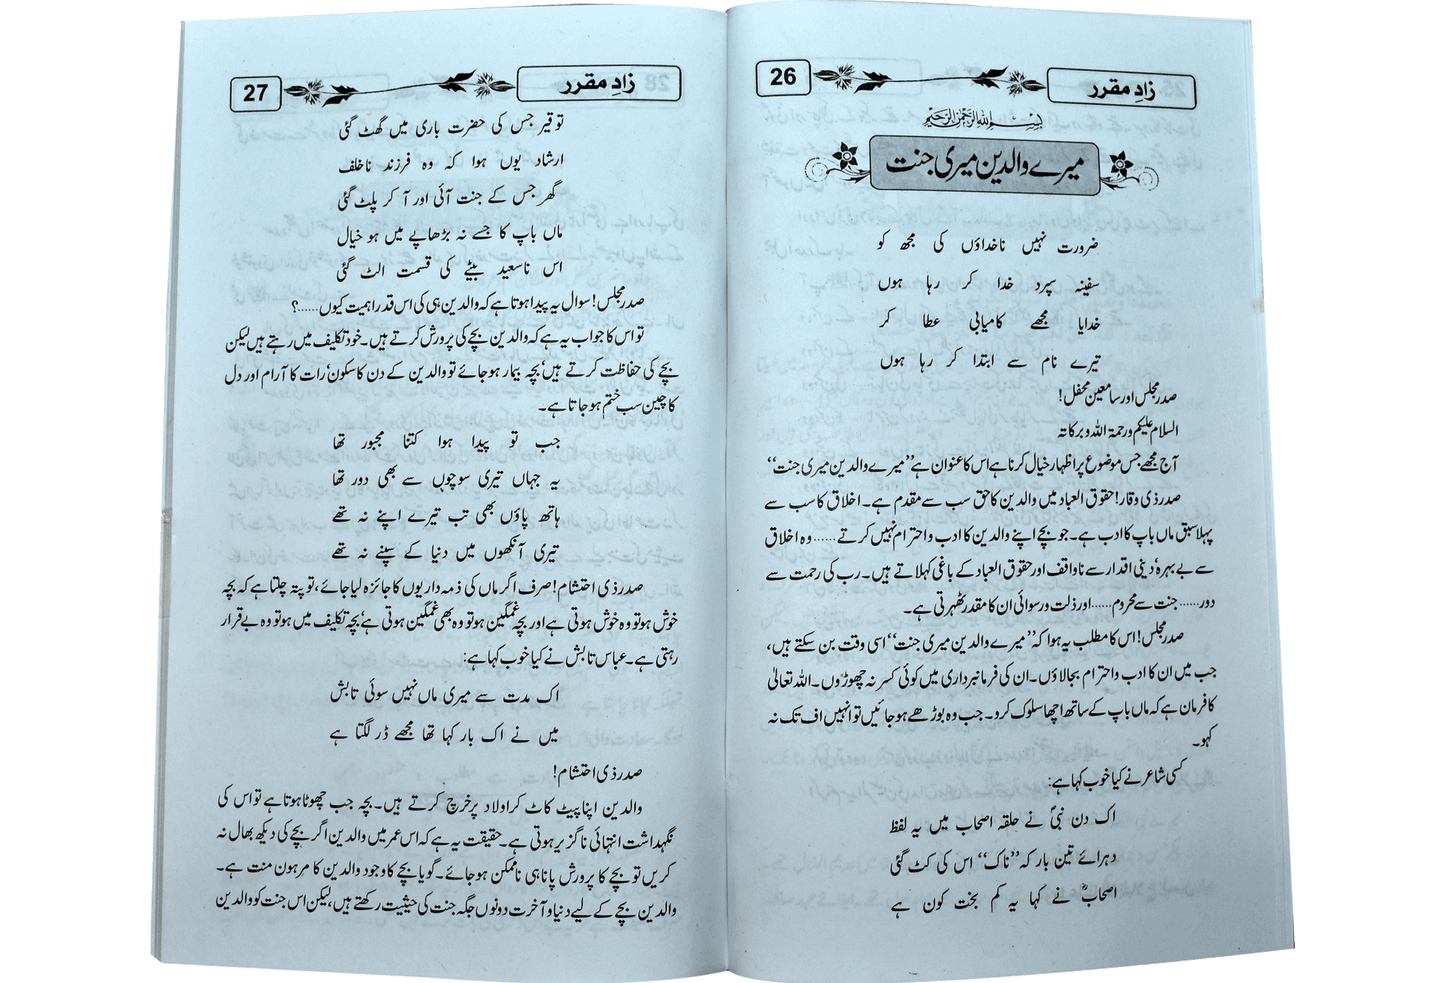 زادِ مقرر 26
بِسْمِ اللّٰہِ الرَّحْمٰنِ الرَّحِیْمِ
میرے والدین میری جنت
ضرورت نہیں ناخداؤں کی مجھ کو
سفینہ سپرد خدا کر رہا ہوں
خدایا مجھے کامیابی عطا کر
تیرے نام سے ابتدا کر رہا ہوں
صدر مجلس اور سامعین محفل!
السلام علیکم ورحمۃ اللہ وبرکاتہ
آج مجھے جس موضوع پر اظہار خیال کرنا ہے اس کا عنوان ہے ”میرے والدین میری جنت“
صدر ذی وقار! حقوق العباد میں والدین کا حق سب سے مقدم ہے۔ اخلاق کا سب سے
پہلا سبق ماں باپ کا ادب ہے۔ جو بچے اپنے والدین کا ادب و احترام نہیں کرتے...... وہ اخلاق
سے بے بہرہ‘ دینی اقدار سے ناواقف اور حقوق العباد کے باغی کہلاتے ہیں۔ رب کی رحمت سے
دور...... جنت سے محروم...... اور ذلت و رسوائی ان کا مقدر ٹھہرتی ہے۔
صدر مجلس! اس کا مطلب یہ ہوا کہ ”میرے والدین میری جنت“ اسی وقت بن سکتے ہیں،
جب میں ان کا ادب و احترام بجا لاؤں۔ ان کی فرمانبرداری میں کوئی کسر نہ چھوڑوں۔ اللہ تعالیٰ
کا فرمان ہے کہ ماں باپ کے ساتھ اچھا سلوک کرو۔ جب وہ بوڑھے ہو جائیں تو انہیں اف تک نہ
کہو۔
کسی شاعر نے کیا خوب کہا ہے:
اک دن نبیؐ نے حلقہ اصحاب میں یہ لفظ
دہرائے تین بار کہ ”ناک“ اس کی کٹ گئی
اصحابؓ نے کہا یہ کم بخت کون ہے
زادِ مقرر 27
توقیر جس کی حضرت باری میں گھٹ گئی
ارشاد یوں ہوا کہ وہ فرزند ناخلف
گھر جس کے جنت آئی اور آ کر پلٹ گئی
ماں باپ کا جسے نہ بڑھاپے میں ہو خیال
اس ناسعید بیٹے کی قسمت الٹ گئی
صدر مجلس! سوال یہ پیدا ہوتا ہے کہ والدین ہی کی اس قدر اہمیت کیوں......؟
تو اس کا جواب یہ ہے کہ والدین بچے کی پرورش کرتے ہیں۔ خود تکلیف میں رہتے ہیں لیکن
بچے کی حفاظت کرتے ہیں‘ بچہ بیمار ہو جائے تو والدین کے دن کا سکون‘ رات کا آرام اور دل
کا چین سب ختم ہو جاتا ہے۔
جب تو پیدا ہوا کتنا مجبور تھا
یہ جہاں تیری سوچوں سے بھی دور تھا
ہاتھ پاؤں بھی تب تیرے اپنے نہ تھے
تیری آنکھوں میں دنیا کے سپنے نہ تھے
صدر ذی احتشام! صرف اگر ماں کی ذمہ داریوں کا جائزہ لیا جائے، تو پتہ چلتا ہے کہ بچہ
خوش ہو تو وہ خوش ہوتی ہے اور بچہ غمگین ہو تو وہ بھی غمگین ہوتی ہے‘ بچہ تکلیف میں ہو تو وہ بے قرار
رہتی ہے۔ عباس تابش نے کیا خوب کہا ہے:
اک مدت سے میری ماں نہیں سوئی تابش
میں نے اک بار کہا تھا مجھے ڈر لگتا ہے
صدر ذی احتشام!
والدین اپنا پیٹ کاٹ کر اولاد پر خرچ کرتے ہیں۔ بچہ جب چھوٹا ہوتا ہے تو اس کی
نگہداشت انتہائی ناگزیر ہوتی ہے۔ حقیقت یہ ہے کہ اس عمر میں والدین اگر بچے کی دیکھ بھال نہ
کریں تو بچے کا پرورش پانا ہی ناممکن ہو جائے۔ گویا بچے کا وجود والدین کا مرہون منت ہے۔
والدین بچے کے لیے دنیا و آخرت دونوں جگہ جنت کی حیثیت رکھتے ہیں، لیکن اس جنت کو والدین